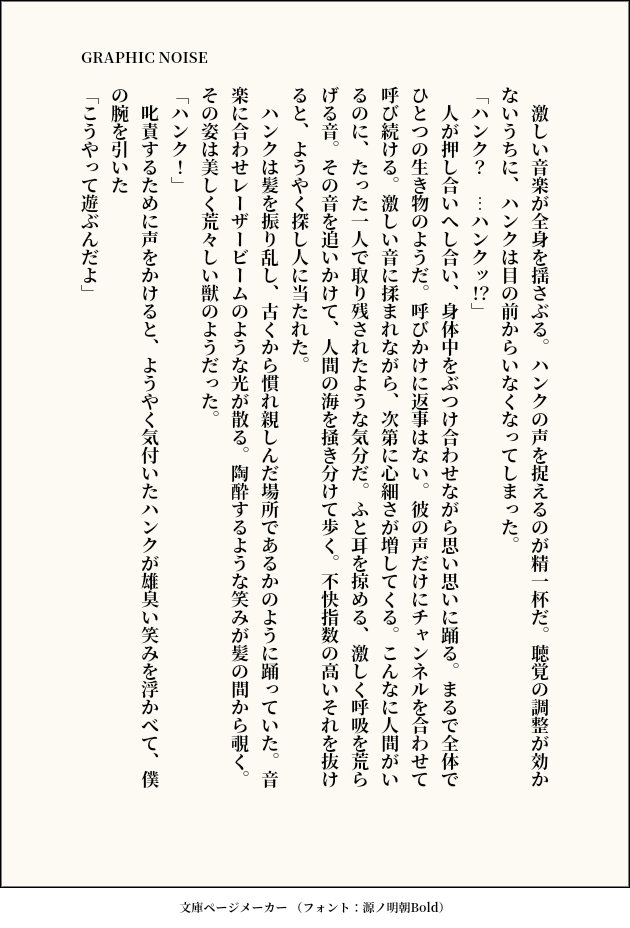 GRAPHIC NOISE
激しい音楽が全身を揺さぶる。ハンクの声を捉えるのが精一杯だ。聴覚の調整が効か
ないうちに、ハンクは目の前からいなくなってしまった。
「ハンク？　…ハンクッ!?」
人が押し合いへし合い、身体中をぶつけ合わせながら思い思いに踊る。まるで全体で
ひとつの生き物のようだ。呼びかけに返事はない。彼の声だけにチャンネルを合わせて
呼び続ける。激しい音に揉まれながら、次第に心細さが増してくる。こんなに人間がい
るのに、たった一人で取り残されたような気分だ。ふと耳を掠める、激しく呼吸を荒ら
げる音。その音を追いかけて、人間の海を掻き分けて歩く。不快指数の高いそれを抜け
ると、ようやく探し人に当たれた。
ハンクは髪を振り乱し、古くから慣れ親しんだ場所であるかのように踊っていた。音
楽に合わせレーザービームのような光が散る。陶酔するような笑みが髪の間から覗く。
その姿は美しく荒々しい獣のようだった。
「ハンク！」
叱責するために声をかけると、ようやく気付いたハンクが雄臭い笑みを浮かべて、僕
の腕を引いた
「こうやって遊ぶんだよ」
文庫ページメーカー （フォント：源ノ明朝Bold）